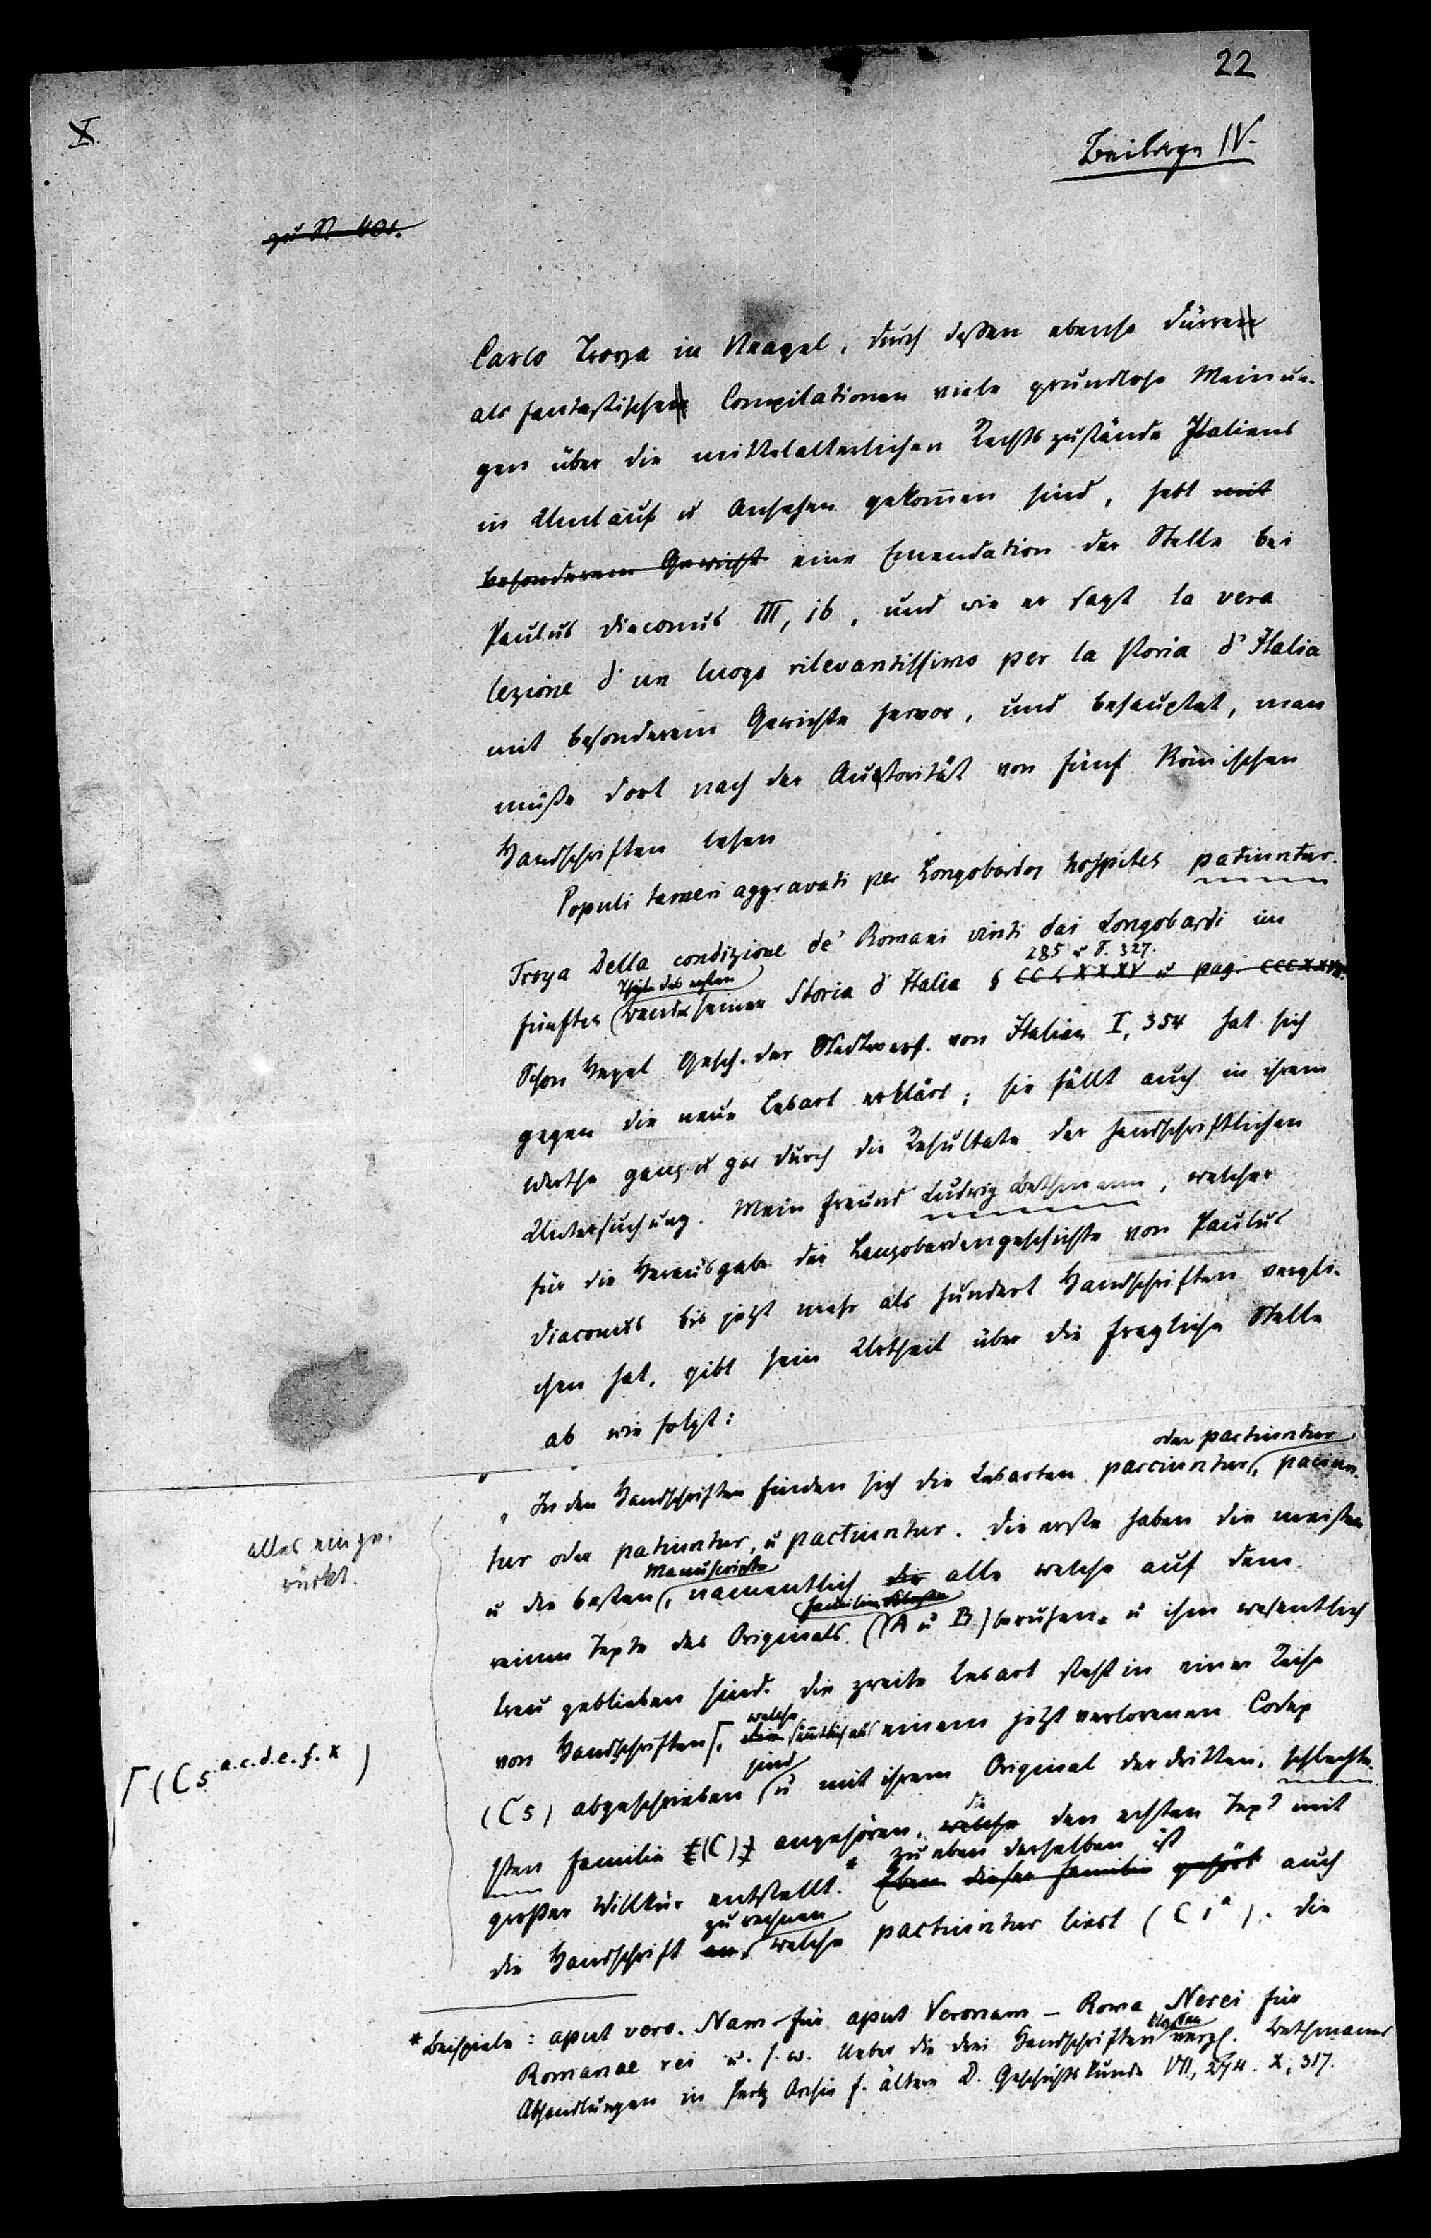 22
X.
Beilage IV.
zu N 401.
Carlo Troya in Neapel, durch deßen ebenso dürren
als fantastischen Compilationen viele grundlose Meinun-
gen über die mittelalterlichen Rechtszustände Italiens
in Umlauf u Ansehen gekom̄en sind, hebt mit
besonderem Gewicht eine Emendation der Stelle bei
Paulus Diaconus III, 16, und wie er sagt la vera
lezione d'un luogo rilevantissimo per la storia d'Italia
mit besonderem Gewichte hervor, und behauptet, man
müße dort nach der Auctorität von fünf Römischen
Handschriften lesen
Populi tamen aggravati per Longobardos hospites patiuntur.
Troya Della condizione de' Romani vinti dai Longobardi im
285 u S. 327.
Theile des ersten
fünften Bande seiner Storia d'Italia § CCLXXXV u pag. CCCXXVII.
Schon Hegel Gesch. der Stadtverf. von Italien I, 354 hat sich
gegen die neue Lesart erklärt; sie fällt auch in ihrem
Werthe ganz u gar durch die Resultate der handschriftlichen
Untersuchung. Mein Freund Ludwig Bethmann, welcher
für die Herausgabe der Langobardengeschichte von Paulus
Diaconus bis jetzt mehr als hundert Handschriften vergli-
chen hat, gibt sein Urtheil über die fragliche Stelle
ab wie folgt:
oder partiuntur
„In den Handschriften finden sich die Lesarten parciuntur, paciun-
tur oder patiuntur, u pactiuntur. Die erste haben die meisten
alles einge-
rückt.
Manuscripte
u die besten, namentlich die alle welche auf dem
Familien
reinen Texte des Originals (A u B) beruhen u ihm wesentlich
treu geblieben sind. Die zweite Lesart steht in einer Reihe
welche
von Handschriften, die sämtlich aus einem jetzt verlorenen Codex
Γ (C 5 a.c.d.e.f.x)
sind
(C5) abgeschrieben u mit ihrem Original der dritten, schlechte-
die
sten Familie (C) angehören, welche den echten Text mit
zu eben derselben ist
großer Willkür entstellt.* Eben dieser Familie gehört auch
zu rechnen
die Handschrift an, welche pactiuntur liest (C 1a). Die
* Beispiele: aput vero. Nam für aput Veronam – Roma Nerei für
Klassen
Romanae rei u. s. w. Ueber die drei Handschriften vergl. Bethmanns
Abhandlungen in Pertz Archiv f. ältere D. Geschichtskunde VII, 274. X, 317.